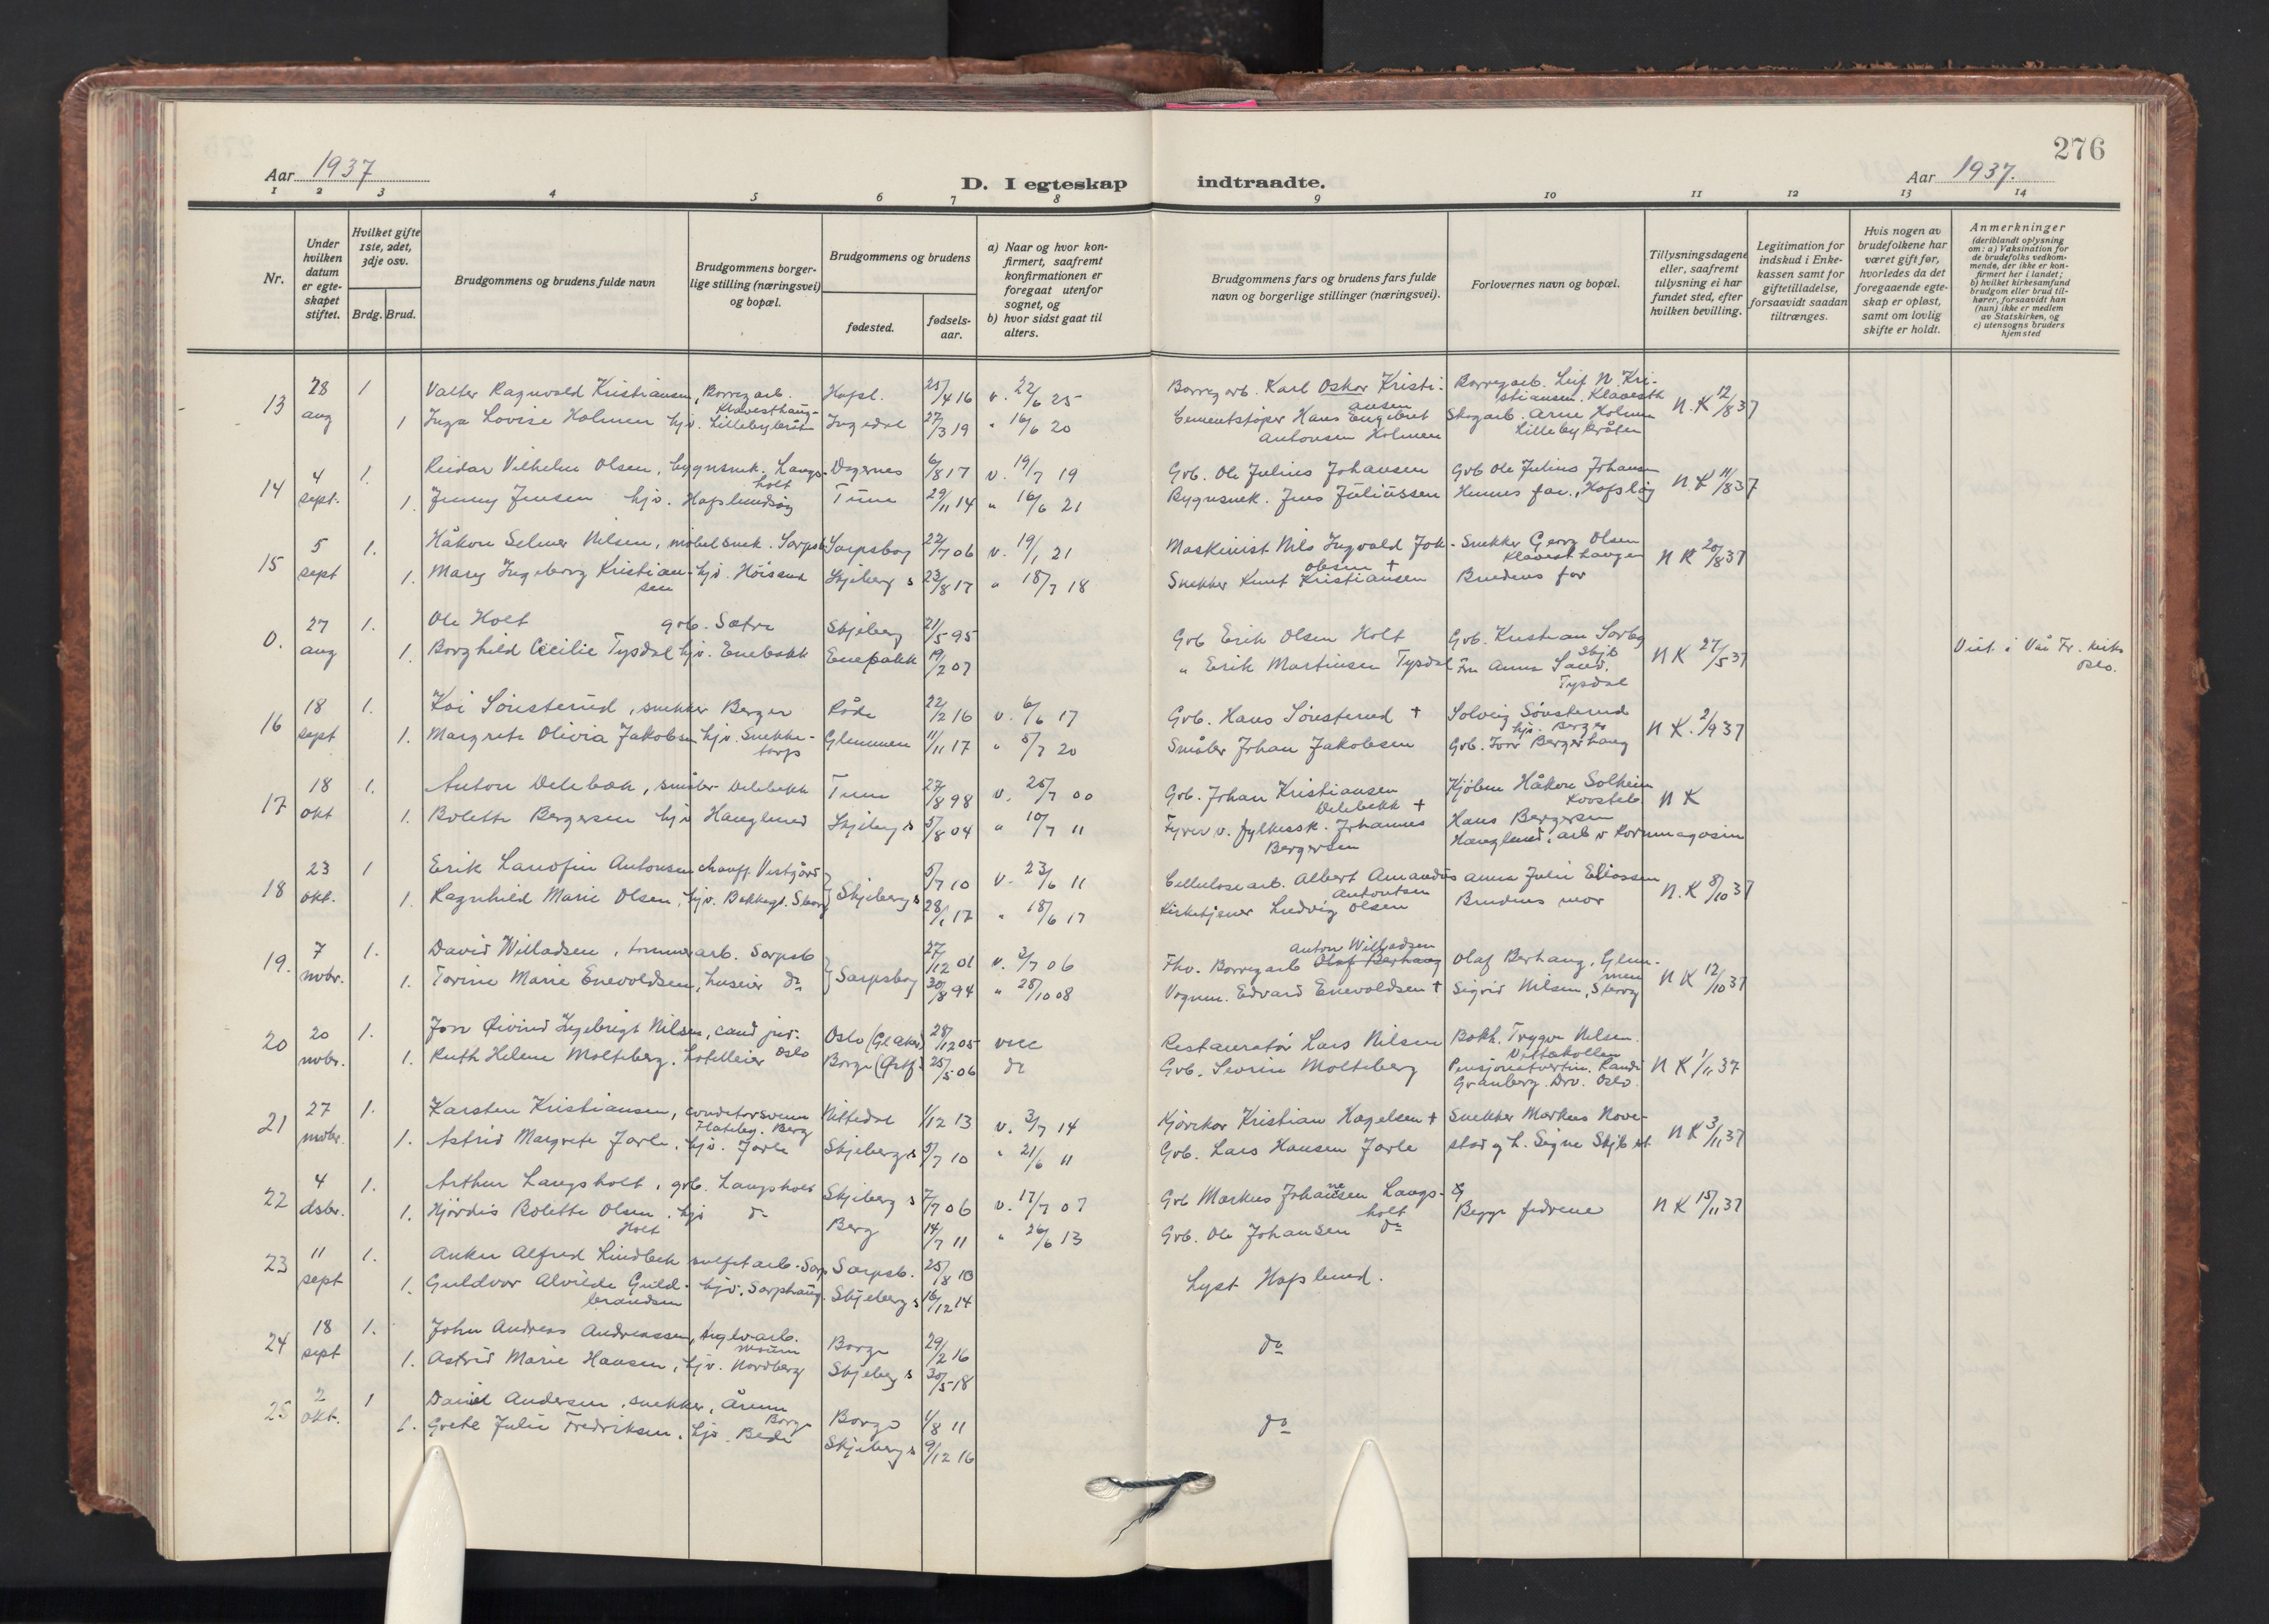 276
Aar 1937
D. I egteskap indtraadte.
Aar 1937.
1 2 3 4 5 6 7 8 9 10 11 12 13 14
Nr.
Under hvilken datum er egteskapet stiftet.
Hvilket gifte 1ste, 2det, 3dje osv.
Brdg. Brud.
Brudgommens og brudens fulde navn
Brudgommens borgerlige stilling (næringsvei) og bopæl.
Brudgommens og brudens
fødested.
fødselsaar.
a) Naar og hvor konfirmert, saafremt konfirmationen er foregaat utenfor sognet, og
b) hvor sidst gaat til alters.
Brudgommens fars og brudens fars fulde navn og borgerlige stillinger (næringsvei).
Forlovernes navn og bopæl.
Tillysningsdagene eller, saafremt tillysning ei har fundet sted, efter hvilken bevilling.
Legitimation for indskud i Enkekassen samt for giftetilladelse, forsaavidt saadan tiltrænges.
Hvis nogen av brudefolkene har været gift før, hvorledes da det foregaaende egteskap er opløst, samt om lovlig skifte er holdt.
Anmerkninger
(deriblandt oplysning om: a) Vaksination for de brudefolks vedkommende, der ikke er konfirmert her i landet; b) hvilket kirkesamfund brudgom eller brud tilhører, forsaavidt han (hun) ikke er medlem av Statskirken, og c) utensogns bruders hjemsted
13 28 aug 1 Valter Ragnvald Kristiansen, Borregarb. Klavesthaug- Hafsl. 25/4 16 v. 22/6 25 Borregarb. Karl Oskar Kristiansen Borregarb. Leif N. Kristiansen. Klavesth N.K 12/8 37
1 Inga Lovise Holmen hjv. Lillebybråten Ingedal 27/3 19 " 16/6 20 Cementstøper Hans Engebret Antonsen Holmen Skogarb. Arne Holmen Lillebybråten
14 4 sept. 1. Reidar Vilhelm Olsen, bygnsnek. Langsholt Degernes 6/8 17 v. 19/7 19 Grb. Ole Julius Johansen Grb Ole Julius Johansen N.K 11/8 37
1. Jenny Jensen hjv. Hafslundsøy Tune 29/11 14 " 16/6 21 Bygnsnek. Jens Juliussen Hennes far., Hafsløy
15 5 sept 1. Håkon Selmer Nilsen, møbelsnek. Sarpsb Sarpsborg 22/7 06 v. 19/1 21 Maskinist Nils Ingvald Johnsen + Snekker Georg Olsen Klavesthaugen N K 20/8 37
1. Mary Ingeborg Kristiansen hjv. Höisand Skjeberg s 23/8 17 " 18/7 18 Snekker Knut Kristiansen Brudens far
0. 27 aug 1. Ole Holt grb. Sætre Skjeberg 21/5 95 Grb Erik Olsen Holt Grb. Kristian Sorby Skjb N K 27/5 37 Viet i Vår Fr. kirke Oslo.
1. Borghild Cecilie Tysdal hjv. Enebakk Enebakk 19/2 07 " Erik Martinsen Tysdal Fru Anna Sand. Tysdal
16 18 sept 1. Kai Sönsterud, snekker Berger Råde 22/2 16 v. 6/6 17 Grb. Hans Sönsterud + Solveig Sönsterud hjv. Berger N K. 2/9 37
1. Margrete Olivia Jakobsen hjv. Snekketorp Glemmen 11/11 17 " 5/7 20 Småbr Johan Jakobsen Grb. Ivar Bergerhaug
17 18 okt 1. Anton Delebæk, småbr Delebekk Tune 27/8 98 v. 25/7 00 Grb. Johan Kristiansen Delebekk + Kjöbm Håkon Solheim N K
1. Bolette Bergersen hjv Hauglund Skjeberg s 5/8 04 " 10/7 11 Fyrer v. fylkessk. Johannes Bergersen Hans Bergersen Hauglund, arb v Kornmagasin
18 23 okt. 1 Erik Lauofin Antonsen chauff. Vestgård } Skjeberg s 5/7 10 v. 23/6 11 Cellulosearb. Albert Amandus Antonsen Anna Julie Eliassen N.K 8/10 37
1. Ragnhild Marie Olsen, hjv. Bakkegt. Sborg 28/1 17 " 18/6 17 Kirketjener Ludvig Olsen Brudens mor
19. 7 nvbr. 1. David Willadsen, tommerarb. Sarpsb } Sarpsborg 27/12 01 v. 2/7 06 Fhv. Borregarb Olaf Berhaug Anton Willadsen Olaf Berhaug, Glemmen N K 12/10 37
1. Torine Marie Enevoldsen, huseier do 30/8 94 " 25/10 08 Vognm. Edvard Enevoldsen + Sigrid Nilsen, Sborg
20 20 nvbr. 1. Jon Øivind Ingebrigt Nilsen, cand jur. Oslo Oslo (Gl. Aker) 28/12 05 Restauratör Lars Nilsen Bokh. Trygve Nilsen. Vettakollen N K 1/11 37
1. Ruth Helene Molteberg. hotelleier Borge (Østf) 25/5 06 do Grb. Severin Molteberg Pensjonatvertin. Randi Granberg. Drv. Oslo.
21 27 nvbr. 1. Karsten Kristiansen, conditorsvenn Hateby. Berg Nittedal 1/12 13 v. 3/7 14 Kjörekar Kristian Hagelsen + Snekker Markus Navestad og L. Signe Skjb st N K 3/11 37
1. Astrid Margrete Jarle, hjv. Jarle Skjeberg s 5/7 10 " 21/6 11 Grb. Lars Hansen Jarle
22 4 dsbr. 1. Arthur Langsholt, grb. Langsholt Skjeberg s 7/7 06 v. 17/7 07 Grb Markus Johannesen Langsholt Begge fedrene N K 15/11 37
1. Hjördis Bolette Olsen Holt, hjv do Berg 14/7 11 " 26/6 13 Grb. Ole Johansen do
23 11 sept 1. Anker Alfred Lindbek sulfitarb. Sarp Sarpsb. 25/8 10 Lyst Hafslund.
1. Guldvor Alvilde Guldbrandsen hjv. Sarphaug. Skjeberg s 16/12 14
24 18 sept 1. John Andreas Andreassen, teglvarb. Moum Borge 29/2 16 do
1. Astrid Marie Hansen, hjv. Nordberg Skjeberg s 30/5 18
25 2 okt. 1 Daniel Andersen, snekker, Årum Borge Borge 1/8 11 do
1. Grete Julie Fredriksen, hjv. Bede Skjeberg s 9/12 16